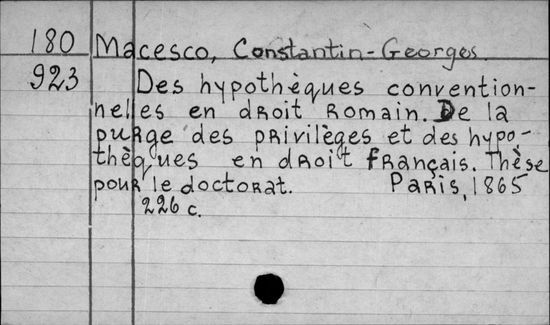 180 Macesco, Constantin-Georges.
923 Des hypothèques convention-
nelles en droit romain. De la
purge des privilèges et des hypo-
thèques en droit français. Thèse
pour le doctorat. Paris, 1865
226 c.